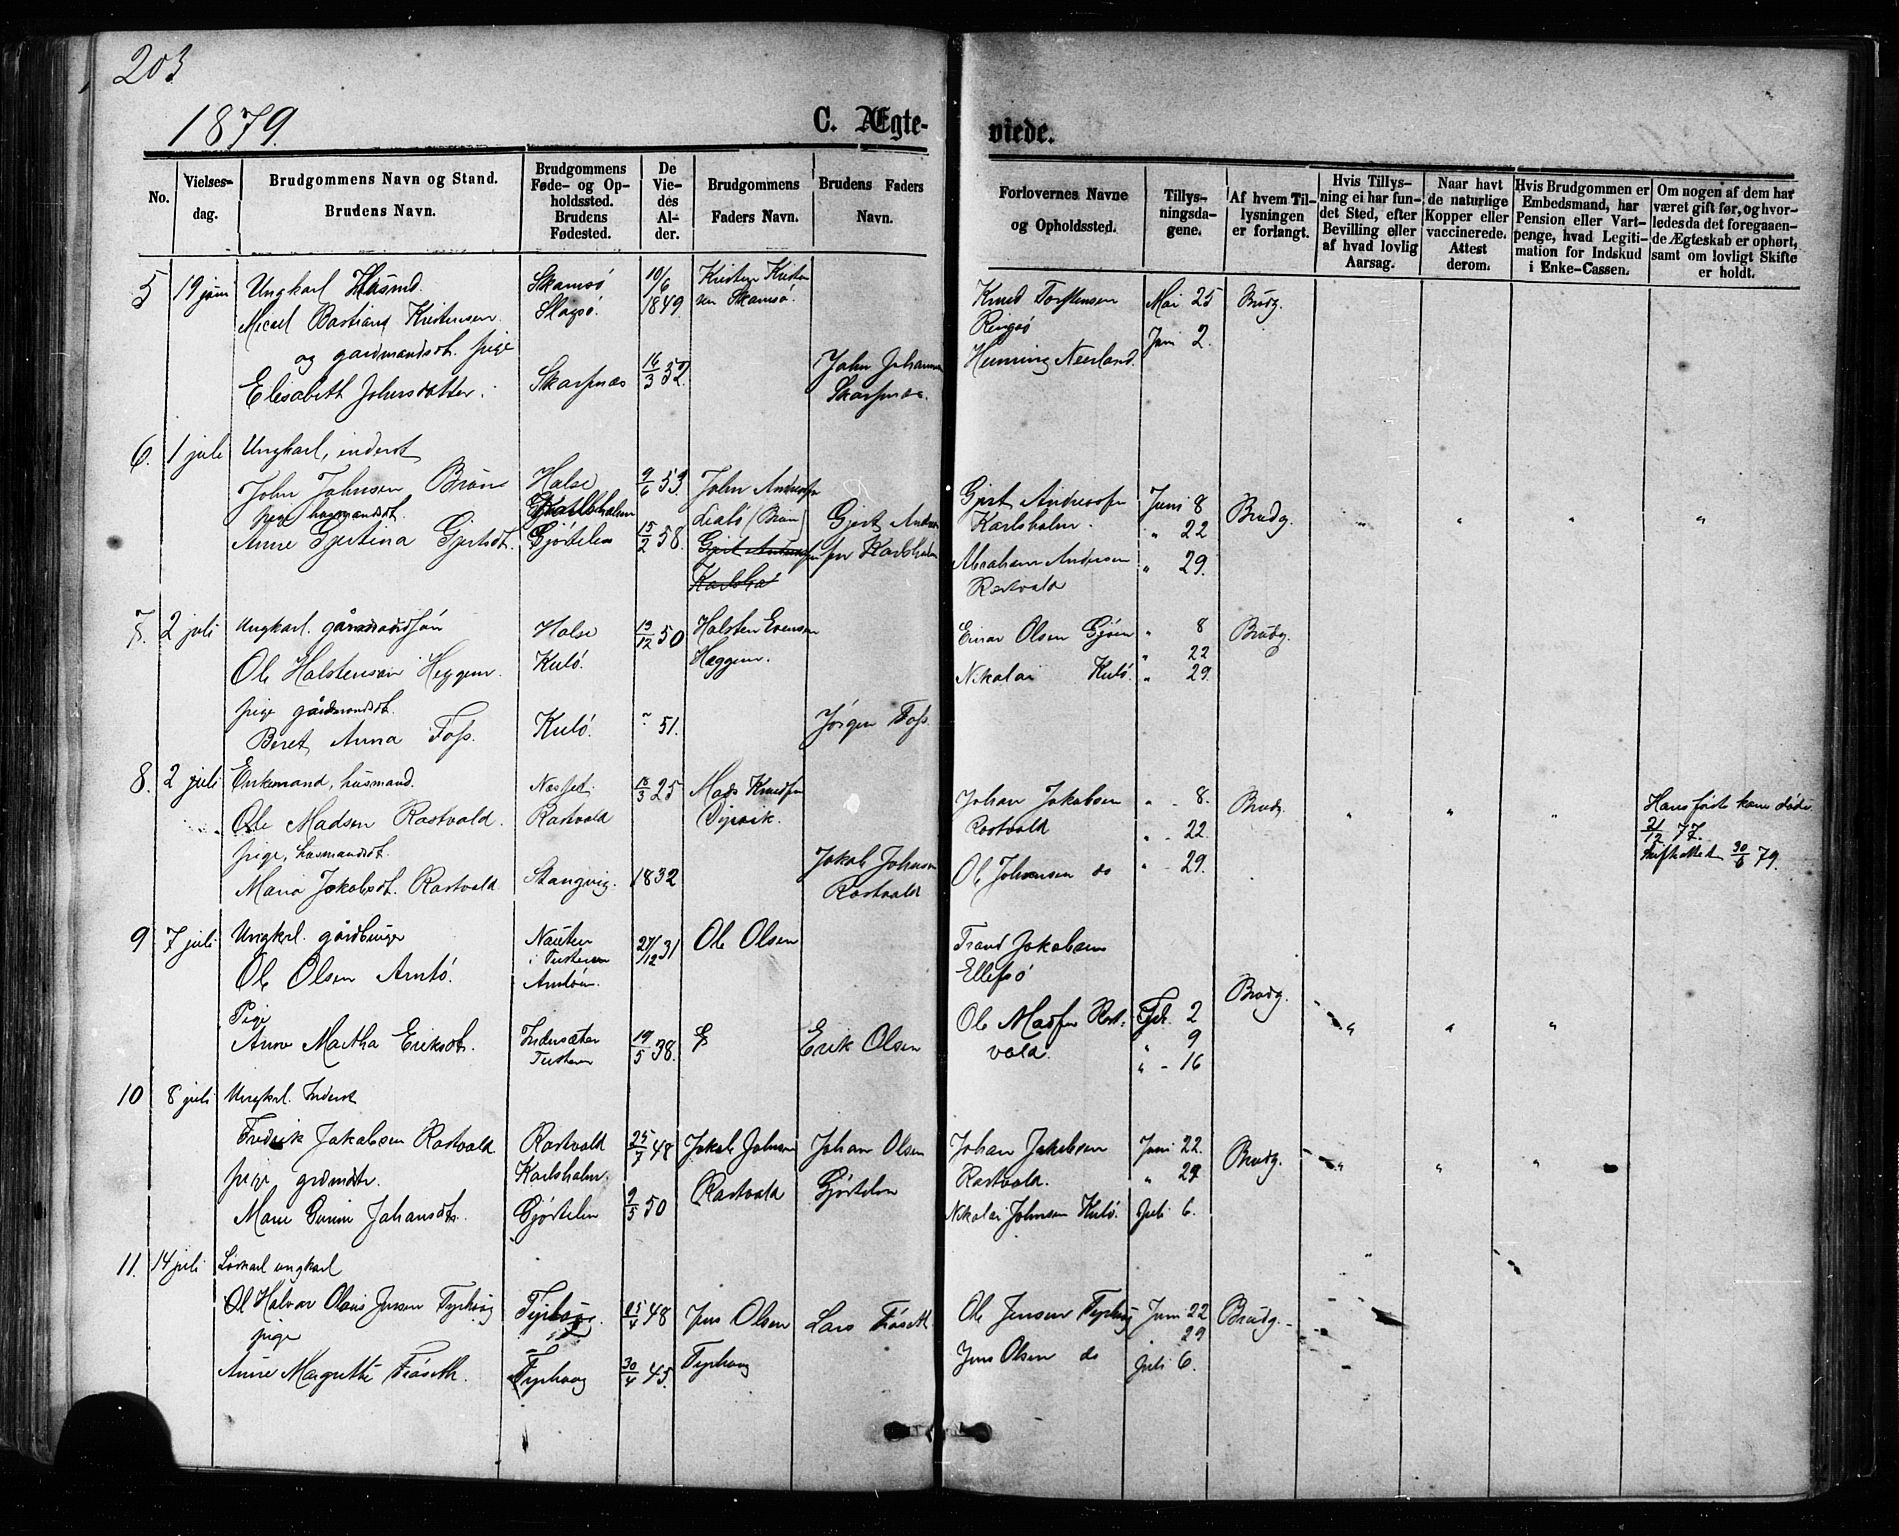 203
1879.
C. Ægte-
viede.
No.
Vielses-
dag.
Brudgommens Navn og Stand.
Brudens Navn.
Brudgommens
Føde- og Op-
holdssted.
Brudens
Fødested.
De
Vie-
des
Al-
der.
Brudgommens
Faders Navn.
Brudens Faders
Navn.
Forlovernes Navne
og Opholdssted.
Tillys-
ningsda-
gene.
Af hvem Til-
lysningen
er forlangt.
Hvis Tillys-
ning ei har fun-
det Sted, efter
Bevilling eller
af hvad lovlig
Aarsag.
Naar havt
de naturlige
Kopper eller
vaccinerede.
Attest
derom.
Hvis Brudgommen er
Embedsmand, har
Pension eller Vart-
penge, hvad Legiti-
mation for Indskud
i Enke-Cassen.
Om nogen af dem har
været gift før, og hvor-
ledes da det foregaaen-
de Ægteskab er ophørt,
samt om lovligt Skifte
er holdt.
5 19 juni Ungkarl Husmd.
Bastians Kristensen
og gardmandsdt. pige
Elisabeth Johnsdatter.
Skarpnæs
10/6 1849
16/3 52
John Johannsen
Skarpnæs.
Knud Torstensen
Ringsø
Henning Neerland.
Mai 25
Juni 2.
Brudg.
6. 1 juli Ungkarl, inderst
John Johnsen Bruns
pige husmandsdt.
Anne Gjertina Gjertsdt.
Halse
Karlsholm
Gjørtelen
9/6 53.
15/2 58.
John Andersfn
Gjert Andersfn
Karlsho
Gjert Anders
fn Karlsholm
Gjert Andersfn
Karlsholm.
Abraham Andersen
Rastvald
Juni 8
" 22
" 29.
Brudg.
" " " "
7. 2 juli Ungkarl. gårdmandssøn
Ole Halstensøn Heggem.
pige gårdmandsdt.
Beret Anna Foss.
Halse
Kulø.
Kulø.
13/12 50
51.
Halsten Evensen
Heggem.
Jørgen Foss.
Einar Olsen Gjøen
Nikolai Kulø.
" 8
" 22
" 29.
Brudg.
8. 2 juli Enkemand, husmand.
Ole Madsen Rastvald.
pige, husmandsdt.
Marie Jakobsdt. Rastvald
Rastvald
Stangvig.
18/3 25
1832
Mads Knudsfn
Jakob Johnsen
Rastvald
Johan Jakobsen
Rastvald
Ole Johansen do
" - 8.
" - 22.
" - 29.
Brudg.
" " "
Hans første kone døde
21/12 77.
Skifteattest 30/6 79.
9 7 juli Ungkrl. gårdbruger
Ole Olsen Arntø.
Pige
Anne Martha Eriksdt.
i Tusteren
Arntøen.
Indersæter
Tusteren
27/12 31
19/5 38.
Ole Olsen
Erik Olsen
Trond Jakobsen
Ellefsø
Ole Madsen Rast-
vald.
Feb. 2
" 9
" - 16
Brudg.
" " "
10 8 juli Ungkrl. Inderst
Fredrik Jakobsen Rastvald
pige grdmdsdtr.
Marie Johansdt.
Rastvald
Karlsholm.
Gjørtelen
25/7 48
9/5 50
Jakob Johnsen
Rastvald
Johan Olsen
Gjørtelen
Johan Jakobsen
Rastvald.
Nikolai Johnsen Kulø.
Juni 22.
" 29
Juli 6.
Brudg.
" " "
11. 14 juli Løskarl ungkarl
Ole Halvor Olaus Jensen Typhaug
pige
Anne Margrethe Frøseth.
Typhaug.
Typhaug
25/4 48
30/4 45.
Jens Olsen
Typhaug
Lars Frøseth
Ole Jensen Typhaug
Jens Olsen do
Juni 22
29
Juli 6.
Brudg.